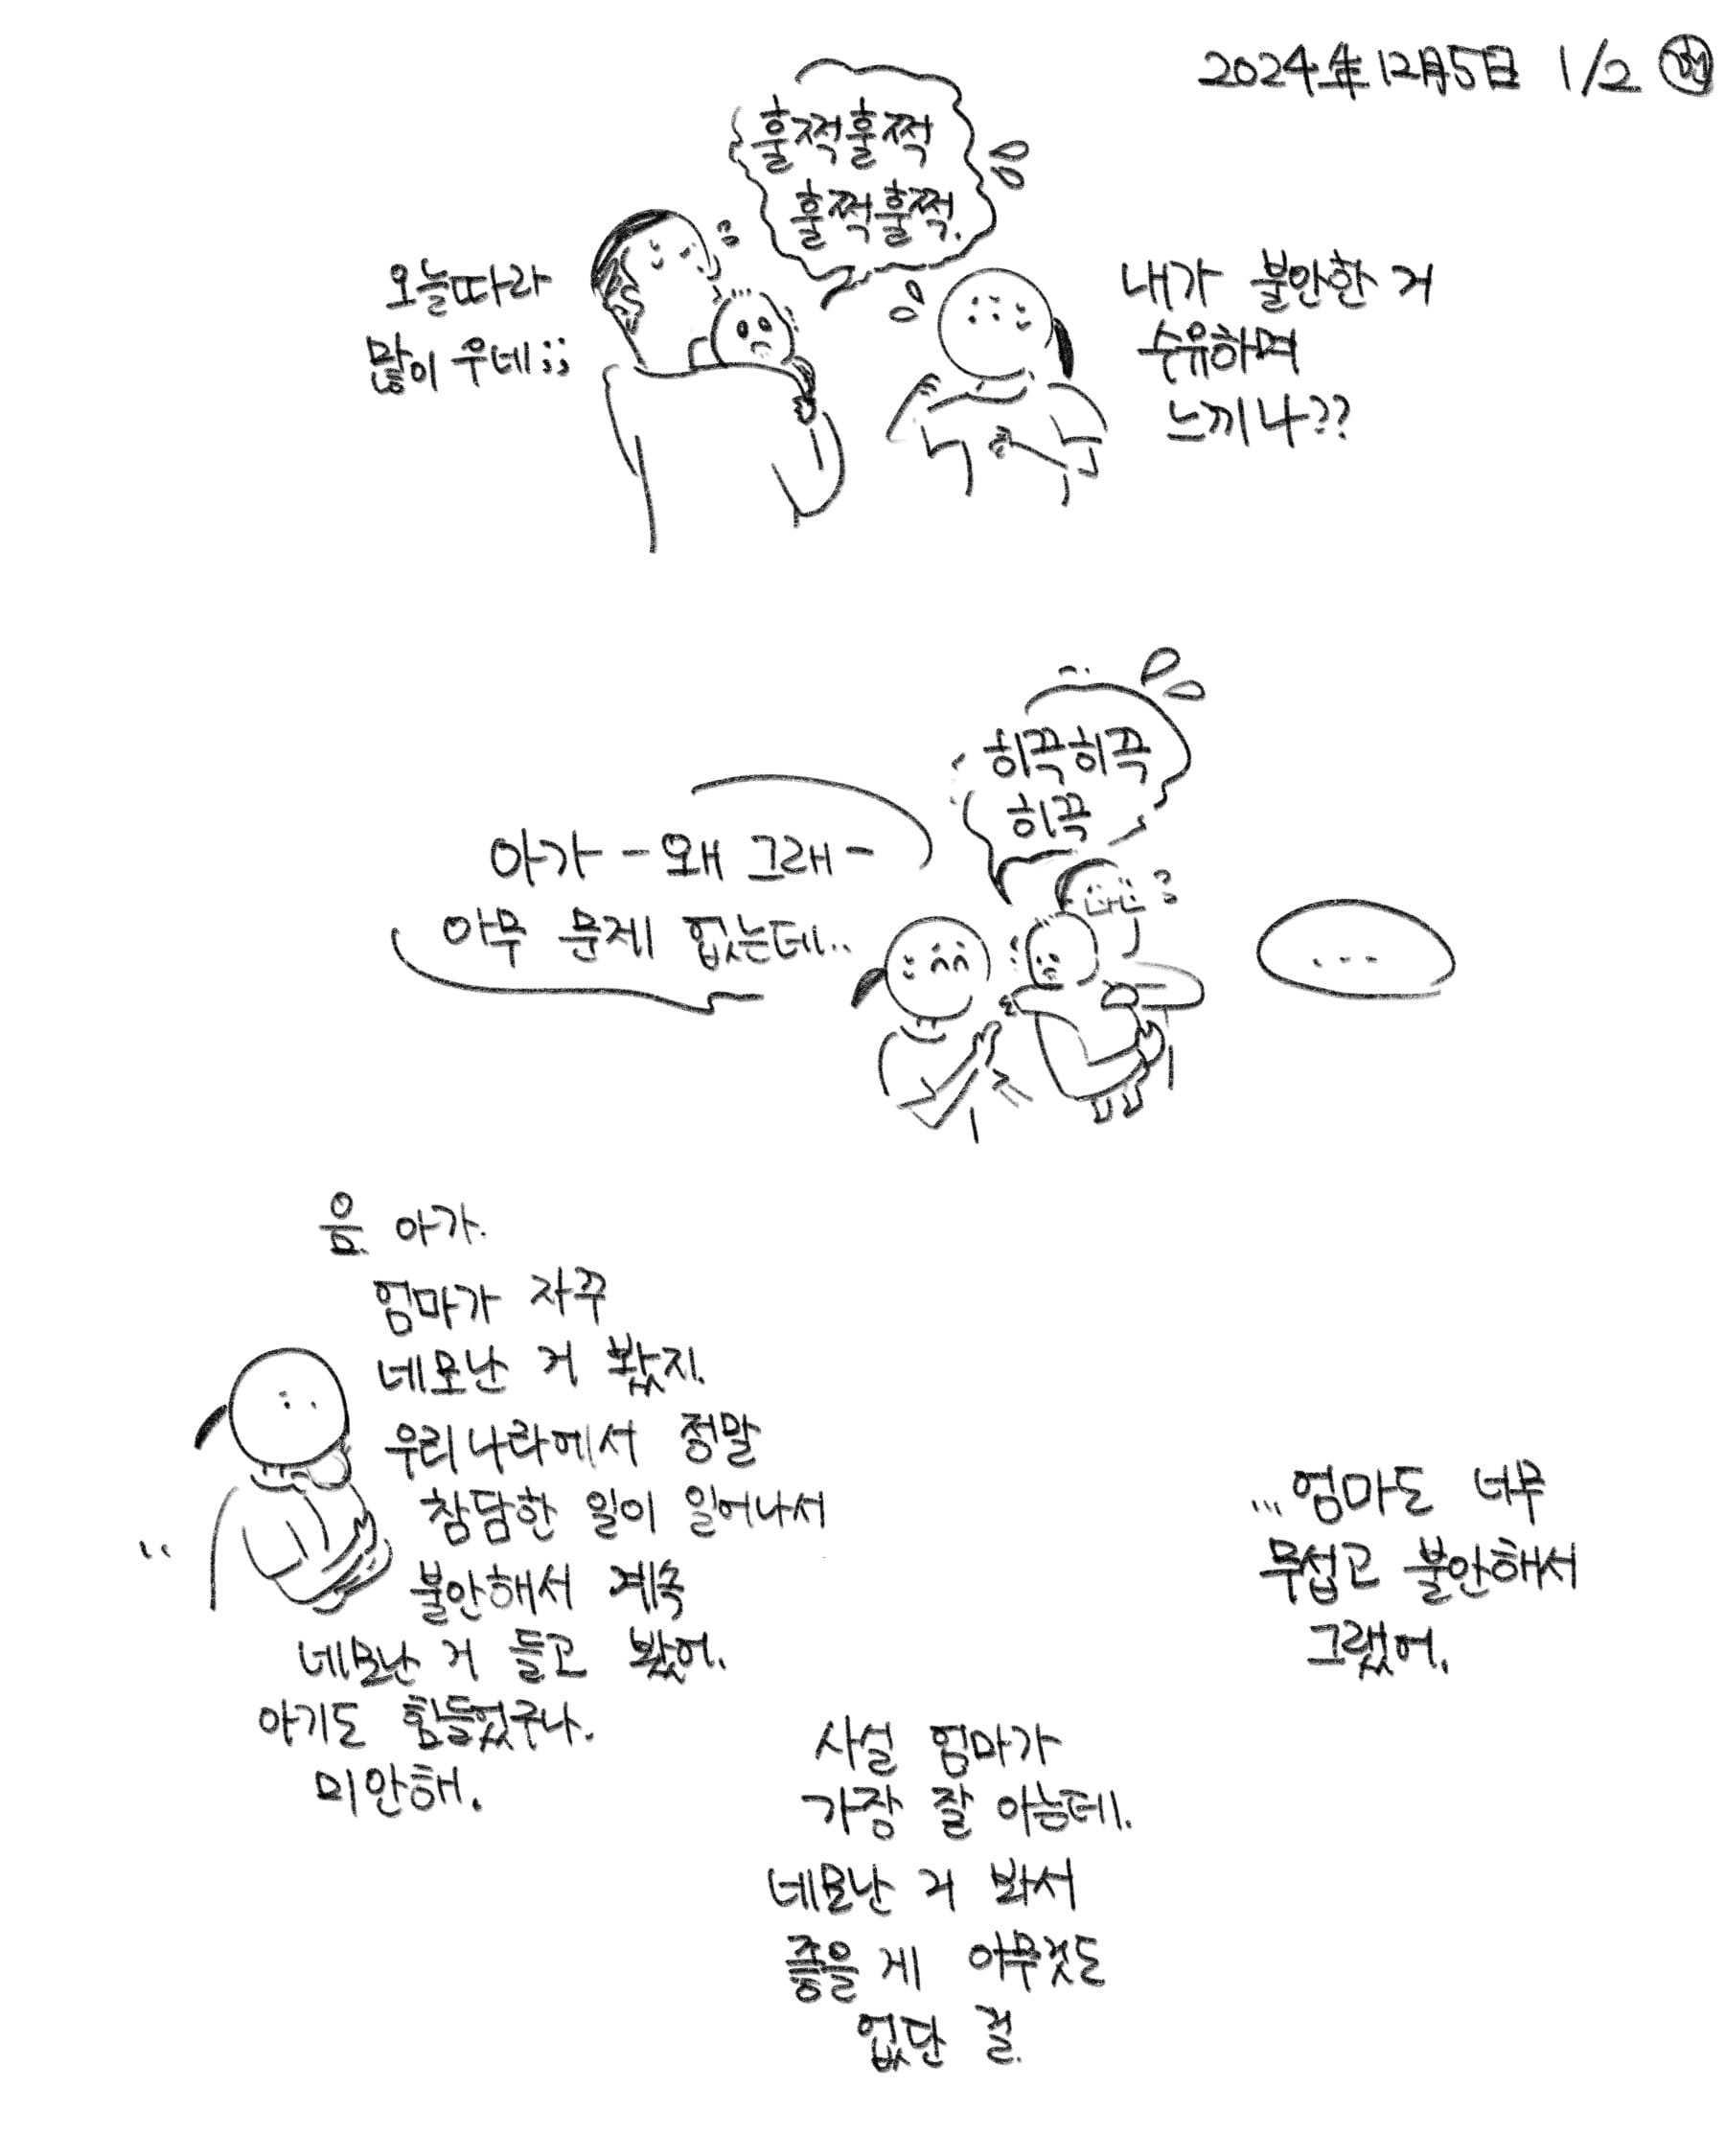 2024年12月5日 1/2
훌쩍훌쩍
훌쩍훌쩍.
오늘따라
많이 우네;;
내가 불안한 거
수유하며
느끼나??
히끅히끅
히끅
아가-왜 그래-
아무 문제 없는데..
...
음. 아가.
엄마가 자꾸
네모난 거 봤지.
우리나라에서 정말
참담한 일이 일어나서
불안해서 계속
네모난 거 들고 봤어.
아기도 힘들었구나.
미안해.
...엄마도 너무
무섭고 불안해서
그랬어.
사실 엄마가
가장 잘 아는데.
네모난 거 봐서
좋을 게 아무것도
없단 걸.